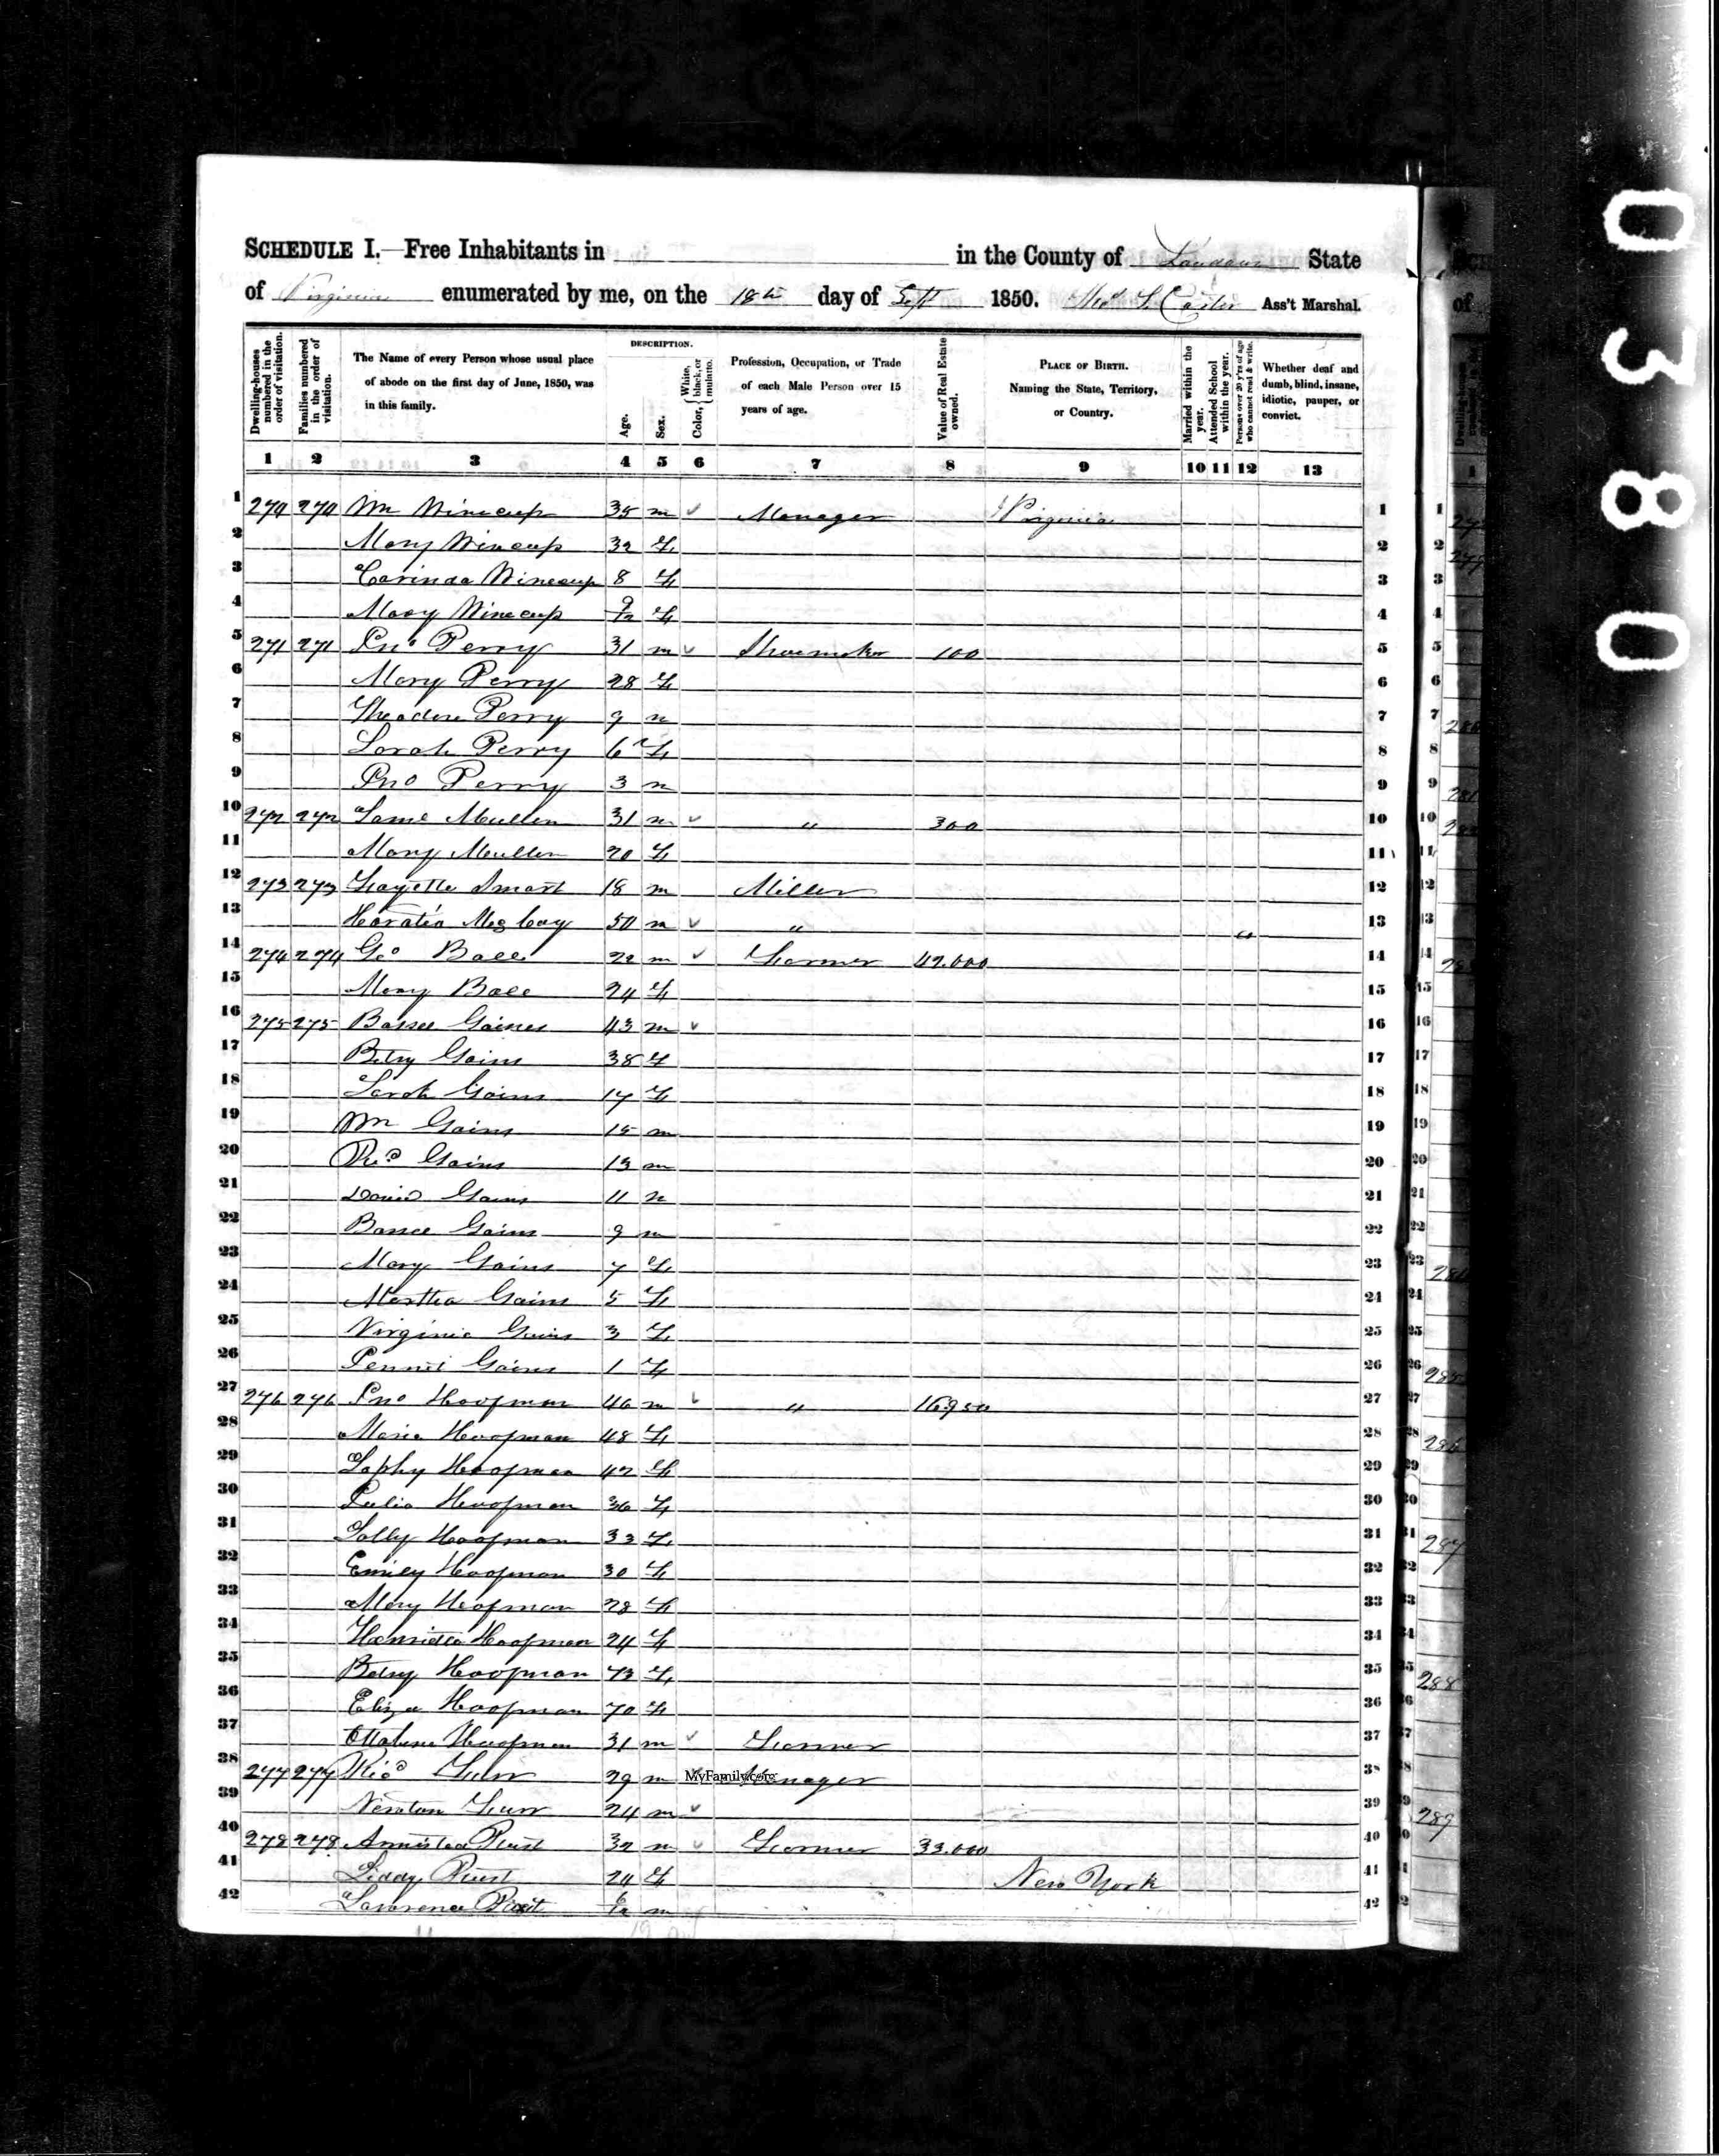 SCHEDULE I.—Free Inhabitants in in the County of Loudoun State
of Virginia enumerated by me, on the 18th day of Sept 1850. Carter Ass't Marshal.
Dwelling-houses numbered in the order of visitation.
Families numbered in the order of visitation.
The Name of every Person whose usual place of abode on the first day of June, 1850, was in this family.
DESCRIPTION.
Age.
Sex.
Color, { White, black, or mulatto.
Profession, Occupation, or Trade of each Male Person over 15 years of age.
Value of Real Estate owned.
PLACE OF BIRTH. Naming the State, Territory, or Country.
Married within the year.
Attended School within the year.
Persons over 20 y'rs of age who cannot read & write.
Whether deaf and dumb, blind, insane, idiotic, pauper, or convict.
1 2 3 4 5 6 7 8 9 10 11 12 13
1 270 270 Wm Winecup 35 m Manager Virginia 1
2 Mary Winecup 32 f 2
3 Winecup 8 f 3
4 Mary Winecup 9/12 f 4
5 271 271 Jno Perry 31 m Shoemaker 100 5
6 Mary Perry 28 f 6
7 Theodore Perry 9 m 7
8 Sarah Perry 6 f 8
9 Jno Perry 3 m 9
10 272 272 Saml Mullen 31 m " 300 10
11 Mary Mullen 20 f 11
12 273 273 Fayette Smart 18 m Miller 12
13 Horatio 50 m " " 13
14 274 274 Geo Ball 22 m Farmer 42.000 14
15 Mary Ball 24 f 15
16 275 275 Gaines 43 m 16
17 Betsy Gains 38 f 17
18 Sarah Gains 17 f 18
19 Wm Gains 15 m 19
20 Gains 13 m 20
21 David Gains 11 m 21
22 Gains 9 m 22
23 Mary Gains 7 f 23
24 Martha Gains 5 f 24
25 Virginia Gains 3 f 25
26 Gains 1 f 26
27 276 276 Jno Hoofman 46 m " 16950 27
28 Maria Hoofman 48 f 28
29 Sophy Hoofman 42 f 29
30 Julia Hoofman 36 f 30
31 Sally Hoofman 33 f 31
32 Emily Hoofman 30 f 32
33 Mary Hoofman 28 f 33
34 Henrietta Hoofman 24 f 34
35 Betsy Hoofman 73 f 35
36 Eliza Hoofman 70 f 36
37 Hoofman 31 m Farmer 37
38 277 277 Ricd Furr 29 m Manager 38
MyFamily.com
39 Newton Furr 24 m 39
40 278 278 Armistead Rust 32 m Farmer 33.000 40
41 Liddy Rust 24 f New York 41
42 Lawrence Rust m 42
0380